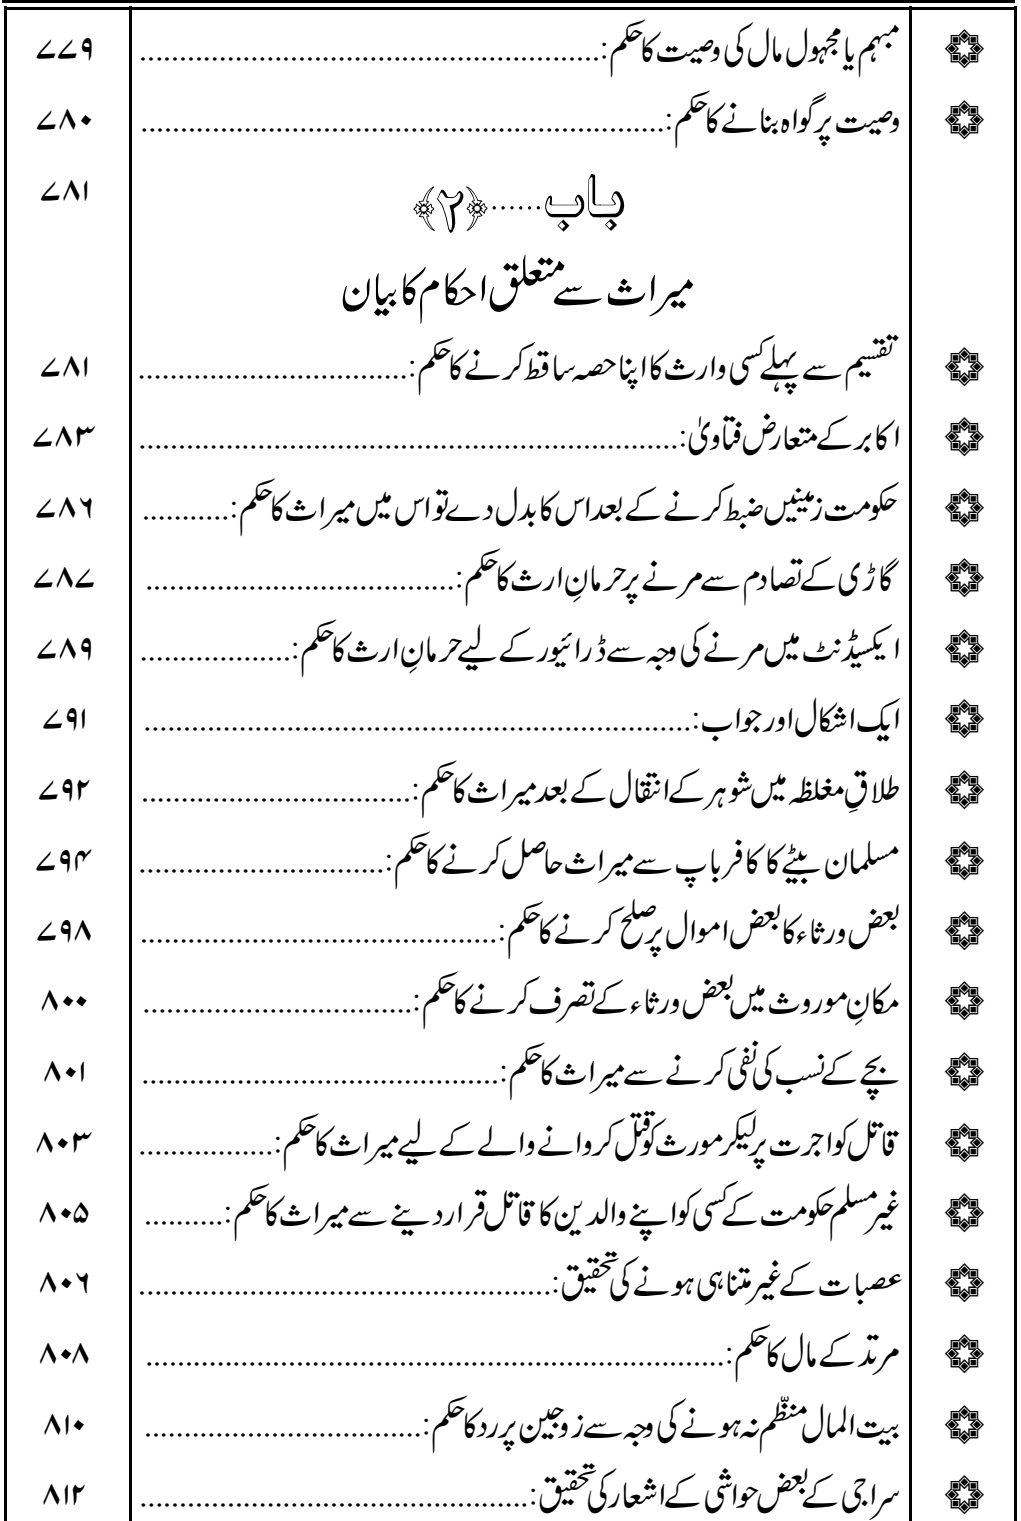 مبہم یا مجہول مال کی وصیت کا حکم:.......................................................... ۷۷۹
وصیت پر گواہ بنانے کا حکم:.................................................................. ۷۸۰
باب......﴿۲﴾ ۷۸۱
میراث سے متعلق احکام کا بیان
تقسیم سے پہلے کسی وارث کا اپنا حصہ ساقط کرنے کا حکم:.................................. ۷۸۱
اکابر کے متعارض فتاویٰ:.................................................................... ۷۸۳
حکومت زمینیں ضبط کرنے کے بعد اس کا بدل دے تو اس میں میراث کا حکم:........... ۷۸۶
گاڑی کے تصادم سے مرنے پر حرمانِ ارث کا حکم:....................................... ۷۸۷
ایکسیڈنٹ میں مرنے کی وجہ سے ڈرائیور کے لیے حرمانِ ارث کا حکم:................... ۷۸۹
ایک اشکال اور جواب:..................................................................... ۷۹۱
طلاقِ مغلظہ میں شوہر کے انتقال کے بعد میراث کا حکم:.................................. ۷۹۲
مسلمان بیٹے کا کافر باپ سے میراث حاصل کرنے کا حکم:............................... ۷۹۴
بعض ورثاء کا بعض اموال پر صلح کرنے کا حکم:............................................. ۷۹۸
مکانِ موروث میں بعض ورثاء کے تصرف کرنے کا حکم:.................................. ۸۰۰
بچے کے نسب کی نفی کرنے سے میراث کا حکم:............................................. ۸۰۱
قاتل کو اجرت پر لیکر مورث کو قتل کروانے والے کے لیے میراث کا حکم:................. ۸۰۳
غیر مسلم حکومت کے کسی کو اپنے والدین کا قاتل قرار دینے سے میراث کا حکم:.......... ۸۰۵
عصبات کے غیر متناہی ہونے کی تحقیق:.................................................... ۸۰۶
مرتد کے مال کا حکم:......................................................................... ۸۰۸
بیت المال منظّم نہ ہونے کی وجہ سے زوجین پر رد کا حکم:................................... ۸۱۰
سراجی کے بعض حواشی کے اشعار کی تحقیق:................................................. ۸۱۲